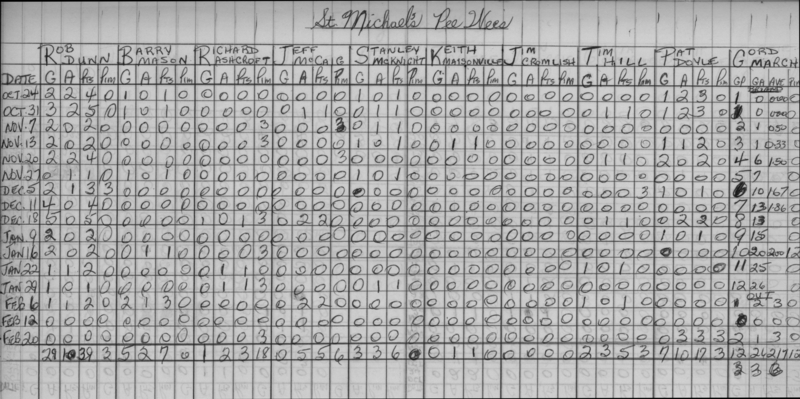 St. Michael's Pee Wees
ROB DUNN BARRY MASON RICHARD ASHCROFT JEFF McCAIG STANLEY McKNIGHT KEITH MAISONVILLE JIM CROMLISH TIM HILL PAT DOYLE GORD MARCH
DATE G A Pts Pim G A Pts Pim G A Pts Pim G A Pts Pim G A Pts Pim G A Pts Pim G A Pts Pim G A Pts Pim G A Pts Pim GP GA AVE Pim
OCT 24 2 2 4 0 1 0 1 0 0 0 0 0 0 0 0 0 1 0 1 0 0 0 0 0 0 0 0 0 0 0 0 0 1 2 3 0 1 0
OCT 31 3 2 5 0 1 0 1 0 0 0 0 0 0 1 1 0 0 1 1 0 0 0 0 0 0 0 0 0 0 1 1 0 1 2 3 0 0
NOV. 7 2 0 2 0 0 0 0 0 0 0 0 3 0 0 0 3 0 1 1 0 0 0 0 0 0 0 0 0 0 0 0 0 0 0 0 0 2 1 050
NOV. 13 2 0 2 0 0 0 0 0 0 0 0 3 0 0 0 0 1 0 1 0 0 1 1 0 0 0 0 0 0 0 0 0 1 1 2 0 3 1 033
NOV. 20 2 2 4 0 0 0 0 0 0 0 0 0 0 0 0 3 0 0 0 0 0 0 0 0 0 0 0 0 0 1 1 0 2 0 2 0 4 6 150
NOV. 27 0 1 1 0 1 0 1 0 0 0 0 0 0 0 0 0 1 0 1 0 0 0 0 0 0 0 0 0 0 0 0 0 0 0 0 0 5 7 0
DEC. 5 2 1 3 3 0 0 0 0 0 0 0 0 0 0 0 0 0 0 0 0 0 0 0 0 0 0 0 0 0 0 0 3 1 0 1 0 6 10 167 0
DEC. 11 4 0 4 0 0 0 0 0 0 0 0 0 0 0 0 0 0 0 0 0 0 0 0 0 0 0 0 0 0 0 0 0 0 0 0 0 7 13 0
DEC. 18 5 0 5 0 0 0 0 0 1 0 1 3 0 2 2 0 0 0 0 0 0 0 0 0 0 0 0 0 0 1 1 0 0 2 2 0 8 13 0
JAN. 9 2 0 2 0 0 0 0 0 0 0 0 0 0 0 0 0 0 0 0 0 0 0 0 0 0 0 0 0 0 0 0 0 1 0 1 0 9 15 0
JAN 16 2 0 2 0 0 1 1 0 0 0 0 3 0 0 0 0 0 0 0 0 0 0 0 0 0 0 0 0 0 0 0 0 0 0 0 0 10 20 200 12
JAN 22 1 1 2 0 0 0 0 0 0 1 1 0 0 0 0 0 0 0 0 0 0 0 0 0 0 0 0 0 1 0 1 0 0 0 0 0 11 25 0
JAN 29 1 0 1 0 0 0 0 0 0 1 1 3 0 0 0 0 0 1 1 0 0 0 0 0 0 0 0 0 0 0 0 0 0 0 0 0 12 26 0
OUT
FEB 6 1 1 2 0 2 1 3 0 0 0 0 0 0 2 2 0 0 0 0 0 0 0 0 0 0 0 0 0 1 0 1 0 0 0 0 0 1 2 3 0
FEB 12 0 0 0 0 0 0 0 0 0 0 0 0 0 0 0 0 0 0 0 0 0 0 0 0 0 0 0 0 0 0 0 0 0 0 0 0 0 0 0 0
FEB 20 0 0 0 0 0 0 0 0 0 0 0 3 0 0 0 0 0 0 0 0 0 0 0 0 0 0 0 0 0 0 0 0 0 3 3 3 2 1 3 0
29 10 39 3 5 2 7 0 1 2 3 18 0 5 5 6 3 3 6 0 0 1 1 0 0 0 0 0 2 3 5 3 7 10 17 3 12 26 217 12
2 3 6